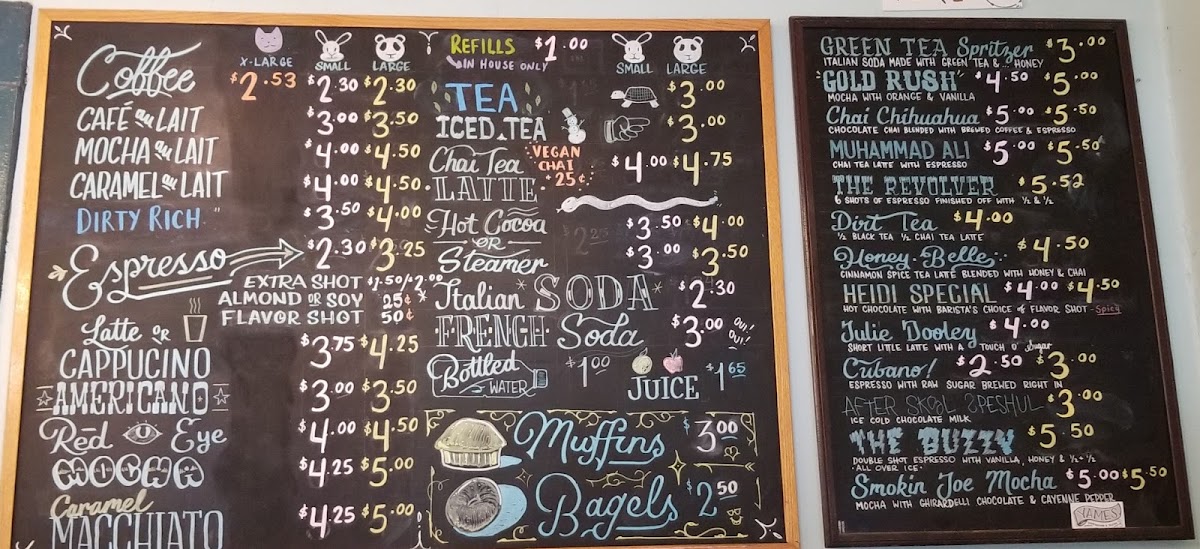 X-LARGE SMALL LARGE
Coffee $2.53 $2.30 $2.30
CAFÉ au LAIT $3.00 $3.50
MOCHA au LAIT $4.00 $4.50
CARAMEL au LAIT $4.00 $4.50
DIRTY RICH " $3.50 $4.00
Espresso $2.30 $3.25
EXTRA SHOT $1.50/$2.00
ALMOND OR SOY 25¢
FLAVOR SHOT 50¢
Latte OR
CAPPUCINO $3.75 $4.25
AMERICANO $3.00 $3.50
Red Eye $4.00 $4.50
MOCHA $4.25 $5.00
Caramel
MACCHIATO $4.25 $5.00
REFILLS $1.00
IN HOUSE ONLY
SMALL LARGE
TEA $3.00
ICED TEA $3.00
Chai Tea
LATTE $4.00 $4.75
VEGAN
CHAI
+25¢
Hot Cocoa $3.50 $4.00
OR
Steamer $3.00 $3.50
Italian SODA $2.30
FRENCH Soda $3.00 OUI! OUI!
Bottled WATER $1.00
JUICE $1.65
Muffins $3.00
Bagels $2.50
GREEN TEA Spritzer $3.00
ITALIAN SODA MADE WITH GREEN TEA & HONEY
"GOLD RUSH" $4.50 $5.00
MOCHA WITH ORANGE & VANILLA
Chai Chihuahua $5.00 $5.50
CHOCOLATE CHAI BLENDED WITH BREWED COFFEE & ESPRESSO
MUHAMMAD ALI $5.00 $5.50
CHAI TEA LATTE WITH ESPRESSO
THE REVOLVER $5.52
6 SHOTS OF ESPRESSO FINISHED OFF WITH ½ & ½
Dirt Tea $4.00
½ BLACK TEA ½ CHAI TEA LATTE
Honey Belle $4.50
CINNAMON SPICE TEA LATTE BLENDED WITH HONEY & CHAI
HEIDI SPECIAL $4.00 $4.50
HOT CHOCOLATE WITH BARISTA'S CHOICE of FLAVOR SHOT - Spicy
Julie Dooley $4.00
SHORT LITTLE LATTE WITH A TOUCH O' Sugar
Cubano! $2.50 $3.00
ESPRESSO WITH RAW SUGAR BREWED RIGHT IN
AFTER SKOOL SPESHUL $3.00
ICE COLD CHOCOLATE MILK
THE BUZZY $5.50
DOUBLE SHOT ESPRESSO WITH VANILLA, HONEY & ½+½
·ALL OVER ICE·
Smokin Joe Mocha $5.00 $5.50
MOCHA WITH GHIRARDELLI CHOCOLATE & CAYENNE PEPPER